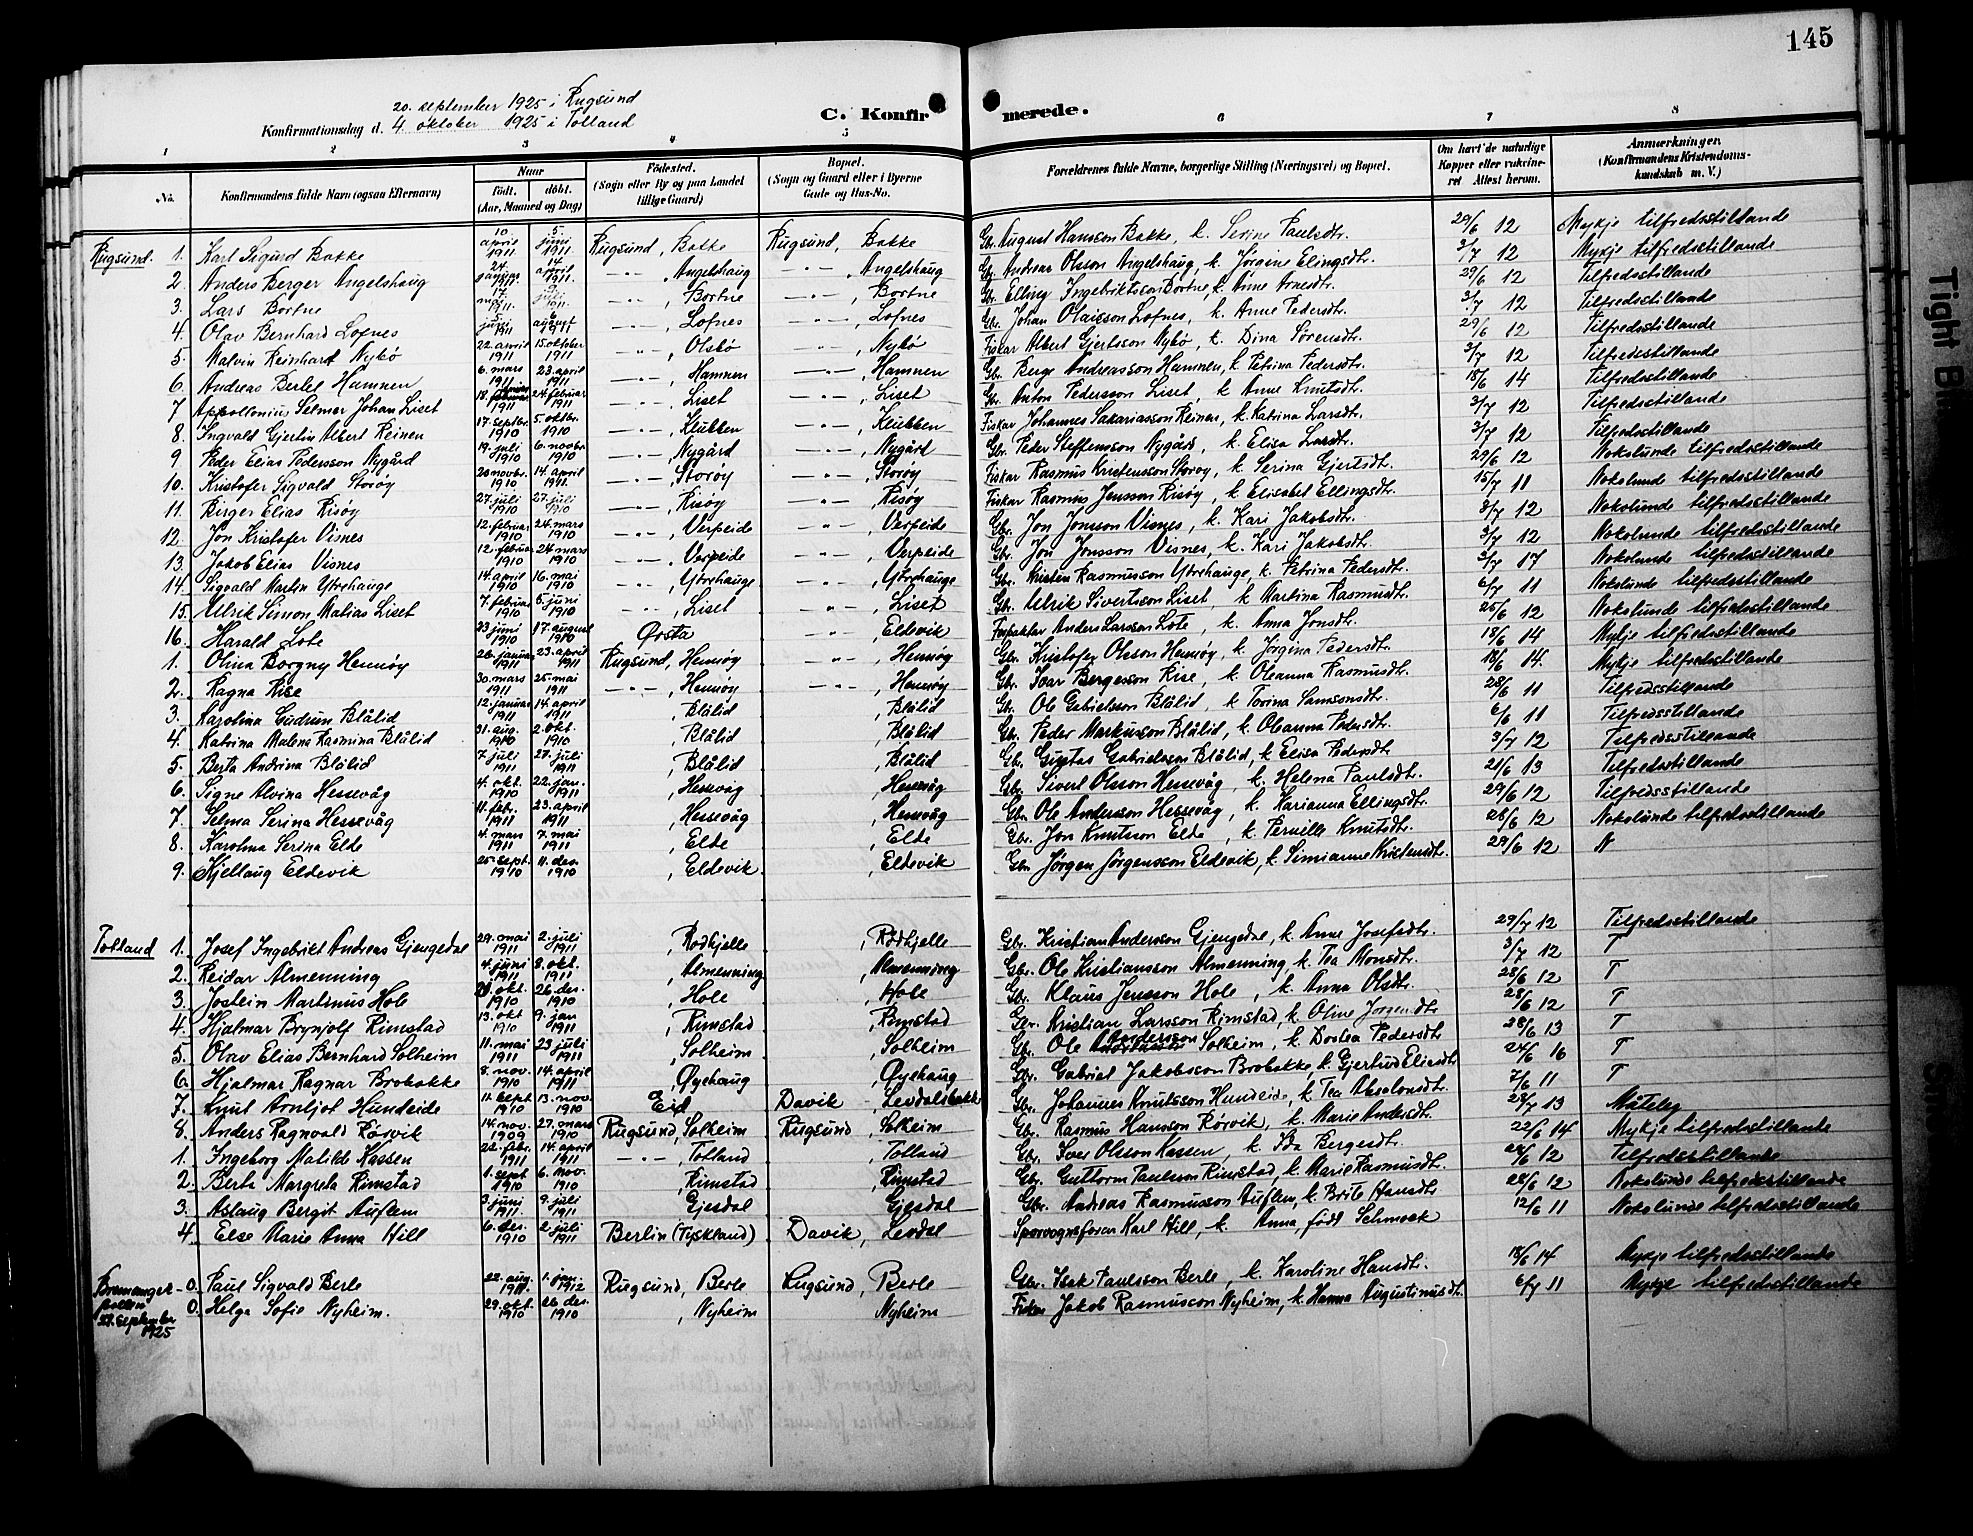 145
20. september 1925 i Rugsund
Konfirmationsdag d. 4 oktober 1925 i Totland
C. Konfirmerede.
1 2 3 4 5 6 7 8
No. Konfirmandens fulde Navn (ogsaa Efternavn) Naar født. døbt. (Aar, Maaned og Dag) Fødested. (Sogn eller By og paa Landet tillige Gaard) Bopæl. (Sogn og Gaard eller i Byerne Gade og Hus-No. Forældrenes fulde Navne, borgerlige Stilling (Næringsvei) og Bopæl. Om havt de naturlige Kopper eller vakcineret Attest herom. Anmærkninger. (Konfirmandens Kristendomskundskab m. V.)
Rugsund. 1. Karl Sigurd Bakke 10 april 1911 5. juni 1911 Rugsund, Bakke Rugsund, Bakke Gbr. August Hansson Bakke, k. Serine Paulsdtr. 29/6 12 Mykje tilfredsstillande
2. Anders Berger Angelshaug 24. januar 1911. 14 april 1911. —"—, Angelshaug —"—, Angelshaug Gbr. Andreas Olsson Angelshaug, k. Jørgine Elingsdtr. 3/7 12 Mykje tilfredsstillande
3. Lars Bortne —"—, Bortne —"—, Bortne Gbr. Elling Ingebriktson Bortne, k. Anne Arnesdtr. 29/6 12 Tilfredsstillande
4. Olav Bernhard Lofnes 6 august 1911 —"—, Lofnes —"—, Lofnes Gbr. Johan Olaisson Lofnes, k. Anne Pedersdtr. 3/7 12 Tilfredsstillande
5. Malvin Reinhart Nybø 22. april 1911 15. oktober 1911 —"—, Olsbø —"—, Nybø Fiskar Albert Gjertsson Nybø, k. Dina Sørensdtr. 29/6 12 Tilfredsstillande
6. Andreas Bertel Hamnen 6. mars 1911 23. april 1911 —"—, Hamnen —"—, Hamnen Gbr. Berge Andreasson Hamnen, k. Petrina Pedersdtr. 3/7 12 Tilfredsstillande
7 Appollonius Selmer Johan Liset 18. 1911 24. februar 1911 —"—, Liset —"—, Liset Gbr. Anton Pedersson Liset, k. Anne Knutsdtr. 18/6 14 Tilfredsstillande
8. Ingvald Gjertin Albert Reinen 17. septbr. 1910 5. oktbr. 1910 —"—, Klubben —"—, Klubben Fiskar Johannes Sakariasson Reinen, k. Katrina Larsdtr. 3/7 12 Tilfredsstillande
9 Peder Elias Pedersson Nygård 19. juli 1910 6. novbr. 1910 —"—, Nygård —"—, Nygård Gbr. Peder Steffensson Nygård, k. Elisa Larsdtr. 3/7 12 Tilfredsstillande
10. Kristofer Sigvald Storøy 20 novbr. 1910 14. april 1911. —"—, Storøy —"—, Storøy Fiskar Rasmus Kristensson Storøy, k. Serina Gjertsdtr. 29/6 12 Nokolunde tilfredsstillande
11. Birger Elias Risøy 27. juli 1910 27. juli 1910 —"—, Risøy —"—, Risøy Fiskar Rasmus Jensson Risøy, k. Elisabet Ellingsdtr. 15/7 11 Nokolunde tilfredsstillande
12. Jon Kristofer Visnes 12. februar 1910 24. mars 1910 —"—, Verpeide —"—, Verpeide Gbr. Jon Jonsson Visnes, k. Kari Jakobsdtr. 3/7 12 Nokolunde tilfredsstillande
13. Jakob Elias Visnes 12. februar 1910 24 mars 1910 —"—, Verpeide —"—, Verpeide Gbr. Jon Jonsson Visnes, k. Kari Jakobsdtr. 3/7 12 Nokolunde tilfredsstillande
14. Sigvald Martin Ytrehauge 14. april 1910 16. mai 1910 —"—, Ytrehauge —"—, Ytrehauge Gbr. Kristen Rasmusson Ytrehauge, k. Petrina Pedersdtr. 3/7 17 Nokolunde tilfredsstillande
15. Ulrik Simon Matias Liset 7. februar 1910 5. juni 1910 —"—, Liset —"—, Liset Gbr. Ulrik Sivertsson Liset, k. Martina Rasmusdtr. 6/7 11 Nokolunde tilfredsstillande
16. Harald Lote 23 juni 1910 17. august 1910 Ørsta —"—, Eldevik Forpaktar Anders Larsson Lote, k. Anna Jonsdtr. 25/6 12 Nokolunde tilfredsstillande
1. Olina Borgny Hennøy 26. januar 1911 23. april 1911 Rugsund, Hennøy —"—, Hennøy Gbr. Kristofer Olsson Hennøy, k. Jørgina Pedersdtr. 18/6 14 Mykje tilfredsstillande
2. Ragna Rise 30. mars 1911 25. mai 1911 —"—, Hennøy —"—, Hennøy Gbr. Ivar Bergesson Rise, k. Oleanna Rasmusdtr. 18/6 14. Mykje tilfredsstillande
3. Karolina Gudrun Blålid 12. januar 1911 14. april 1911 , Blålid , Blålid Gbr. Ole Gabrielsson Blålid, k Torina Samsonsdtr. 28/6 11 Tilfredsstillande
4. Katrina Malena Rasmina Blålid 31. aug. 1910 2. okt. 1910 , Blålid , Blålid Gbr. Peder Markusson Blålid, k. Oleanna Pedersdtr. 6/6 11 Tilfredsstillande
5. Berta Andrina Blålid 7. juli 1911 27. juli 1911 , Blålid , Blålid Gbr. Gustas Gabrielsson Blålid, k. Elisa Pedersdtr. 3/7 12 Tilfredsstillande
6. Signe Alvina Hessevåg 4. okt. 1910 22. jan. 1911 , Hessevåg , Hessevåg Gbr. Sivert Olsson Hessevåg, k. Helena Paulsdtr. 21/6 13 Tilfredsstillande
7. Selma Serina Hessevåg 11. feb. 1911 23. april 1911 , Hessevåg , Hessevåg Gbr. Ole Andersson Hessevåg, k. Karianna Ellingsdtr. 29/6 12 Tilfredsstillande
8. Karolina Serina Elde 4. mars 1911 7. mai 1911 , Elde , Elde Gbr. Jon Knutsson Elde, k. Pernille Knutsdtr. 28/6 12 Nokolunde tilfredsstillande
9. Kjellaug Eldevik 25. sept. 1910 11. des. 1910 , Eldevik , Eldevik Gbr. Jørgen Jørgensson Eldevik, k. Simianne Kristensdtr. 29/6 12 N
Totland 1. Josef Ingebrikt Andreas Gjengedal 29. mai 1911 2. juli 1911 , Rødhjelle , Rødhjelle Gbr. Kristian Andersson Gjengedal, k. Anne Josefsdtr. 29/7 12 Tilfredsstillande
2. Reidar Almenning 4. juni 1911 8. okt. 1911 , Almenning , Almenning Gbr. Ole Kristiansson Almenning, k. Tea Monsdtr. 3/7 12 T
3. Jostein Martinus Hole okt. 1910 26. des. 1910 , Hole , Hole Gbr. Klaus Jensson Hole, k. Anna Olsdtr. 28/6 12 T
4. Hjalmar Brynjolf Rimstad 13. okt 1910 9. jan 1911 , Rimstad , Rimstad Gbr. Kristian Larsson Rimstad, k. Oline Jørgensdtr 28/6 12 T
5. Olav Elias Bernhard Solheim 11. mai 1911 23 juli 1911 , Solheim , Solheim Gbr. Ole Andersson Solheim, k. Dortea Pedersdtr 28/6 13 T
6. Hjalmar Ragnar Brobakke 8. nov. 1910 14. april 1911 , Øyehaug , Øyehaug Gbr. Gabriel Jakobsson Brobakke, k. Gjertrud Eliasdtr 24/6 16 T
7. Knut Arnljot Hundeide 11. sept 1910 13. nov. 1910 Eid Davik, Levdalsbakk Gbr. Johannes Knutsson Hundeide, k. Tea Absalonsdtr. 7/6 11 T
8. Anders Ragnvald Rørvik 14. nov. 1909 27. mars 1910 Rugsund, Solheim Rugsund, Solheim Gbr. Rasmus Hansson Rørvik, k. Marie Andersdtr. 28/7 13 Måteleg
1. Ingeborg Matilde Kassen 22. febr. 1911 14. april 1911 —"—, Totland , Totland Gbr. Iver Olsson Kassen, k. Ida Bergesdtr. 22/6 14 Mykje tilfredsstillande
2. Berta Margreta Rimstad 1. sept 1910 6. nov. 1910 , Rimstad , Rimstad Gbr. Guttorm Paulsson Rimstad, k. Marie Rasmusdtr. 12 Tilfredsstillande
3. Aslaug Bergit Auflem 3. juni 1911. 9. juli 1911 , Gjesdal , Gjesdal Gbr. Andreas Rasmusson Auflem, k. Brite Hansdtr 28/6 12 Nokolunde tilfredsstillande
4. Else Marie Anna Hill 6. des. 1910 2. juli 1911 Berlin (Tyskland) Davik, Levdal Sporvognsførar Karl Hill, k. Anna, født Schmock 12/6 11 Nokolunde tilfredsstillande
Bremanger- 0. Paul Sigvald Berle 22. aug. 1911 1. jan 1912 Rugsund, Berle Rugsund, Berle Gbr. Isak Paulsson Berle, k. Karoline Hansdtr. 18/6 14 Mykje tilfredsstillande
pollen 27. september 1925 0. Helga Sofie Nyheim. 29. okt. 1910 26 des. 1910 , Nyheim Nyheim Fiskar Jakob Rasmusson Nyheim, k. Hanna Augustinusdtr. 6/7 11 Mykje tilfredsstillande
Tight Bi